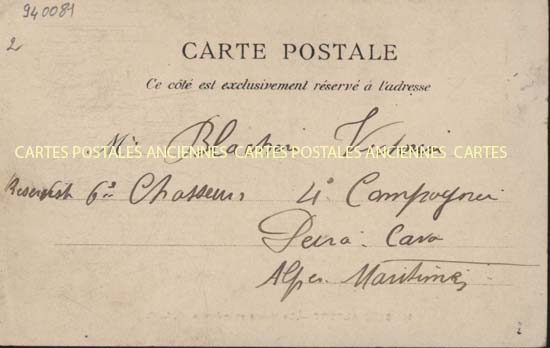 940081
2
CARTE POSTALE
Ce côté est exclusivement réservé à l'adresse
Mr
CARTES POSTALES ANCIENNES CARTES POSTALES ANCIENNES CARTES
Reservist 6e Chasseurs 4e Compagnie
Peira-Cava
Alpes Maritimes